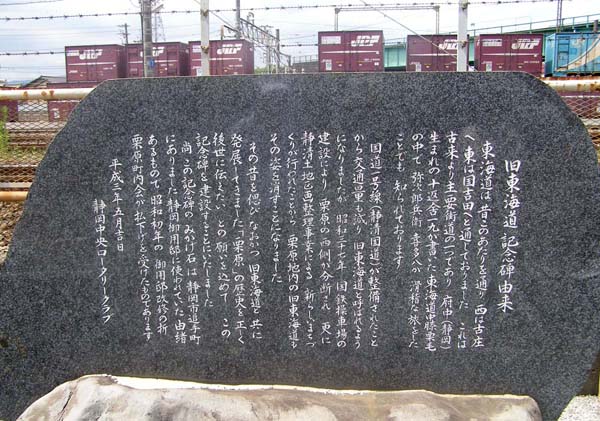 旧東海道 記念碑由来
東海道は 昔このあたりを通り 西は古庄
へ 東は国吉田へと通じておりました これは
古来より主要街道の一つであり 府中(静岡)
生まれの十返舎一九が書いた東海道中膝栗毛
の中で 弥次郎兵衛・喜多八が 滑稽な旅をした
ことでも 知られております
国道一号線(静清国道)が整備されたこと
から交通量も減り 旧東海道と呼ばれるよう
になりましたが 昭和三十七年 国鉄操車場の
建設により 栗原の西側で分断され 更に
静清土地区画整理事業による 新らしいまちづ
くりが行われたことから 栗原地内の旧東海道も
その姿を消すことになりました
その昔を偲び なおかつ 旧東海道と共に
発展してきました「栗原」の歴史を正しく
後世に伝えたいとの願いを込めて この
記念碑を建設することにいたしました
尚 この記念碑のみかげ石は 静岡市追手町
にありました静岡御用邸に使われていた由緒
あるもので 昭和初年の 御用邸改修の折
栗原町内会が払下げを受けたものであります
平成三年五月吉日
静岡中央ロータリークラブ
JRF
JRF
JRF
JRF
JRF